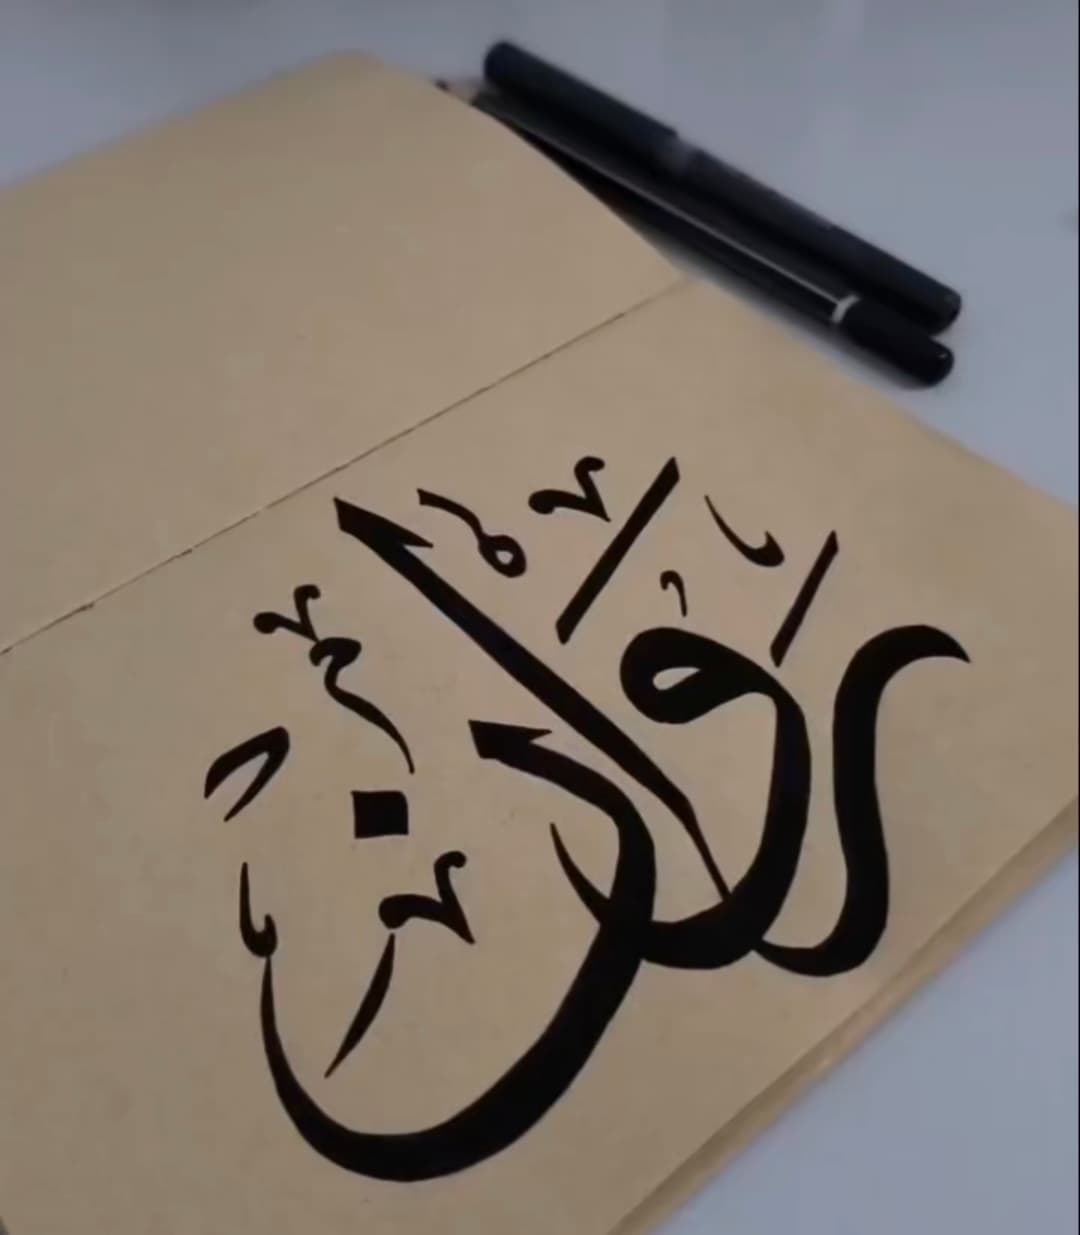 رَوَان